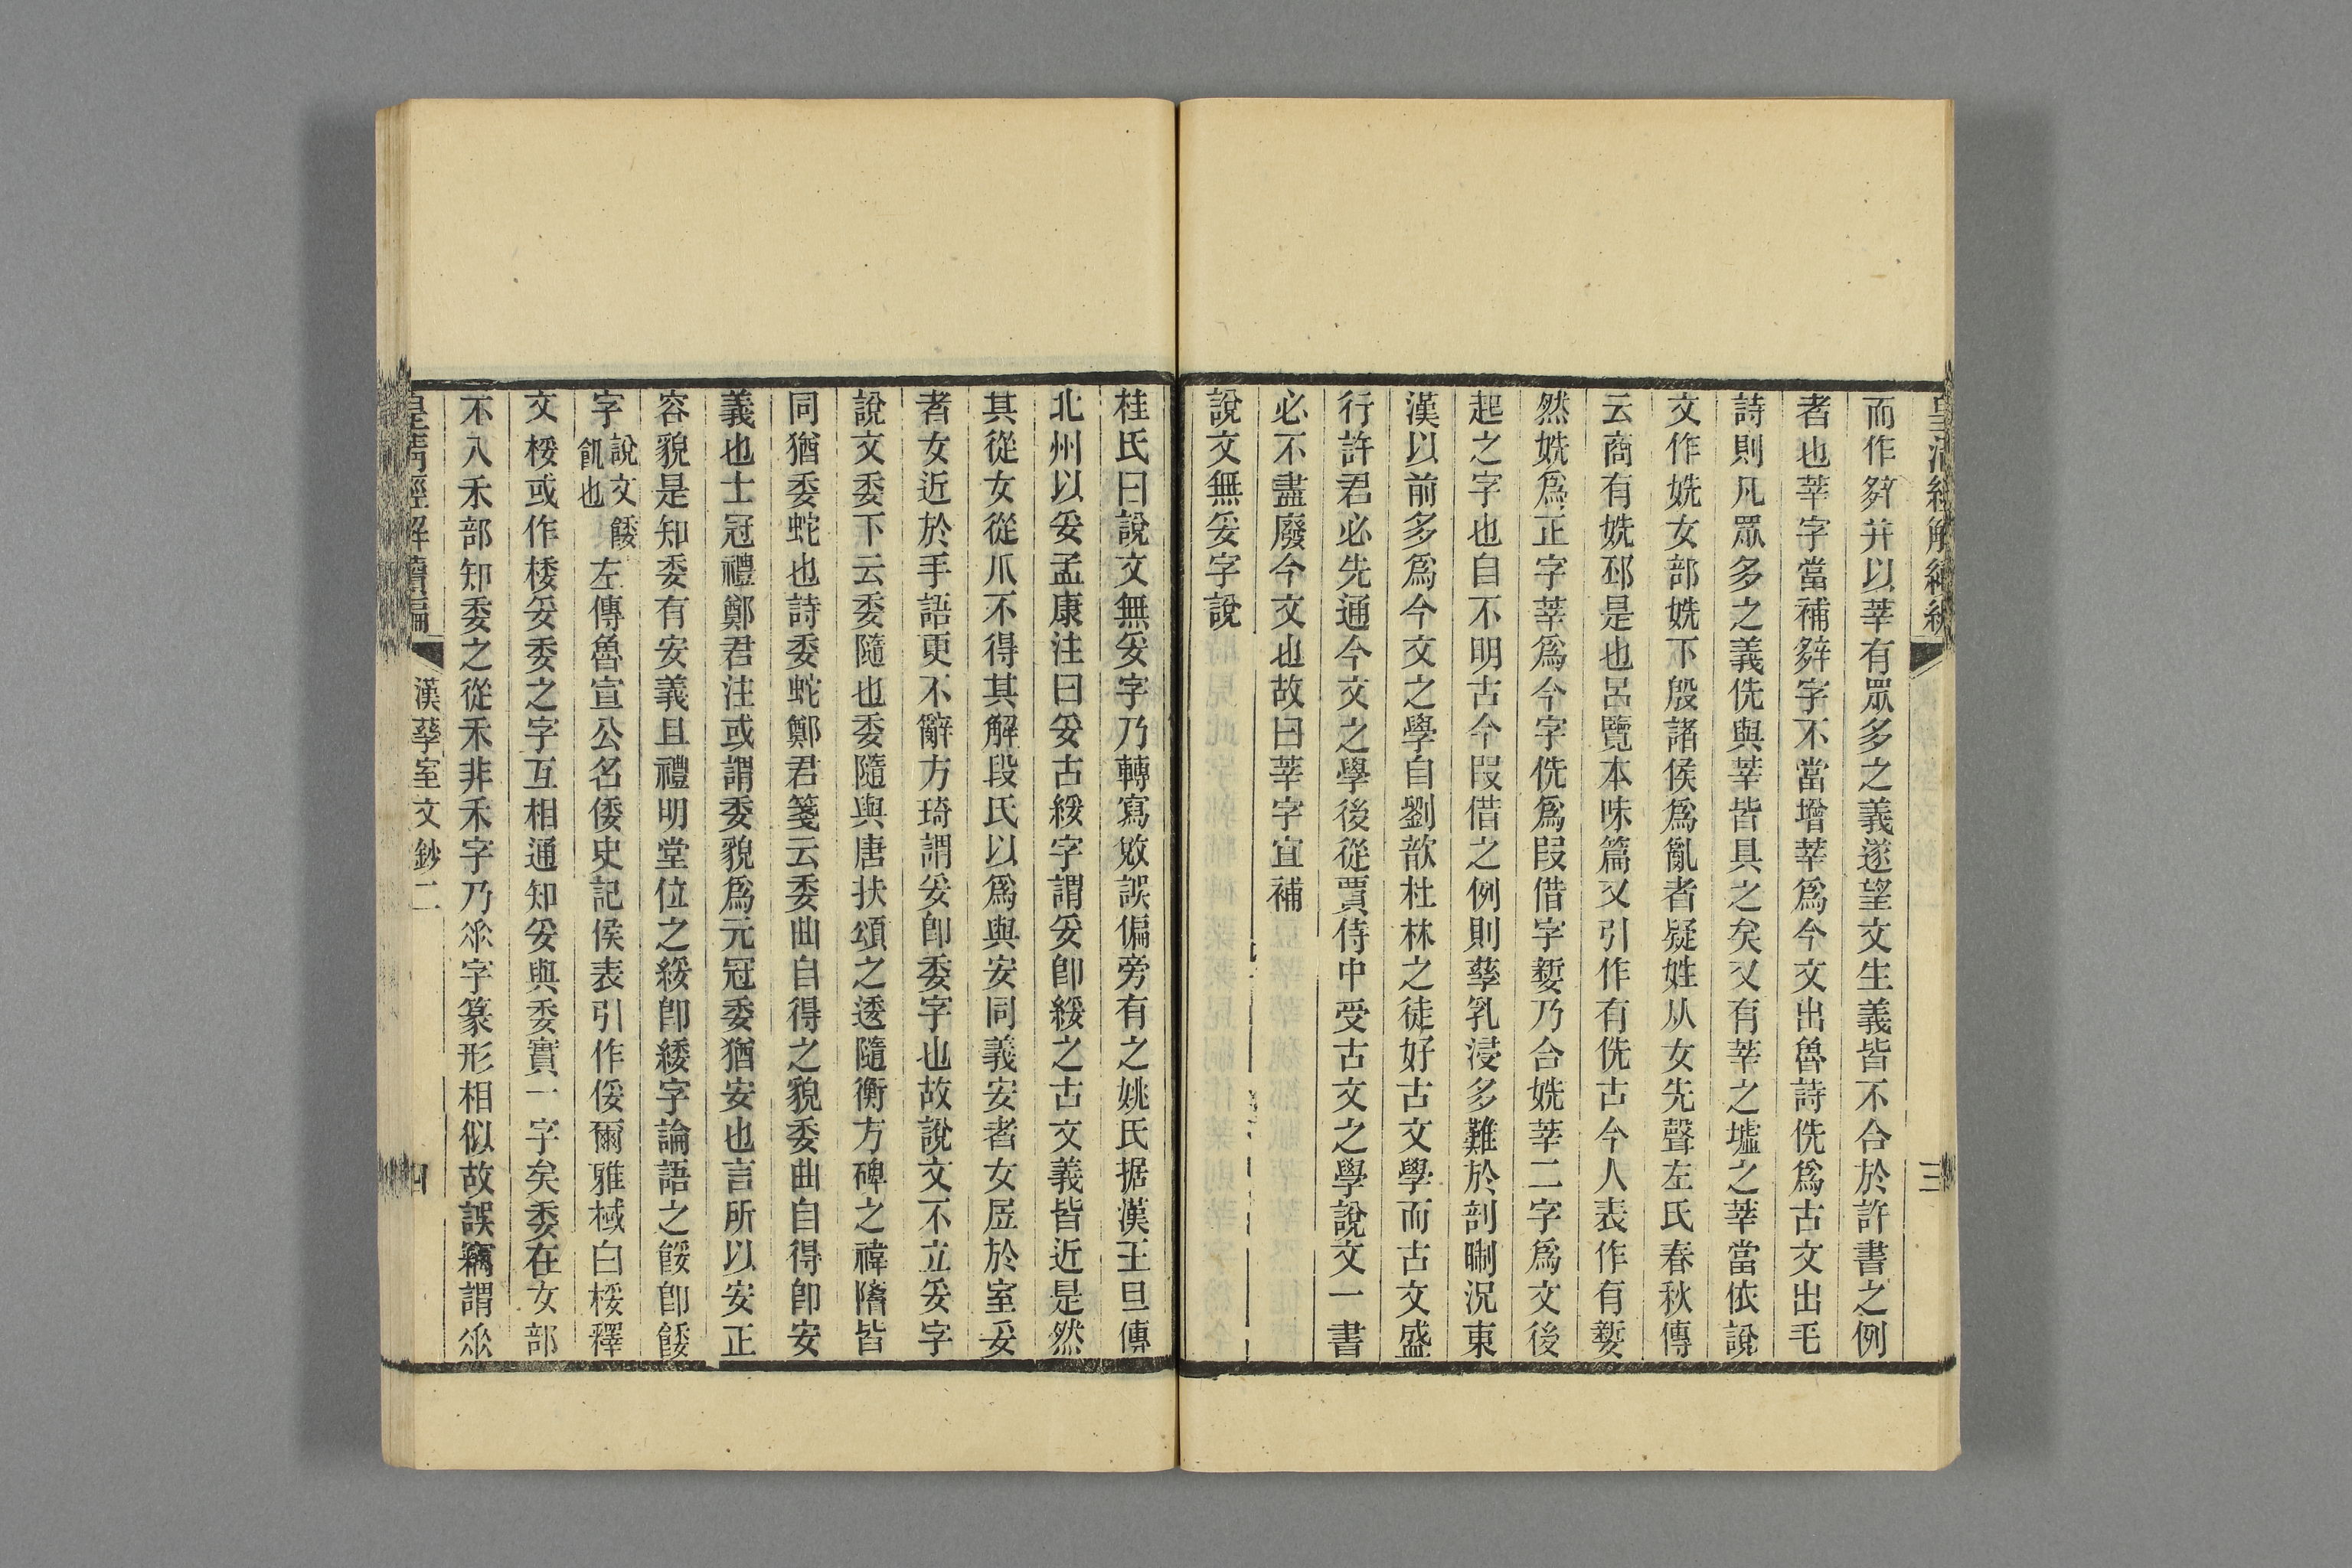 皇清經解續編
三
而作㚌并以莘有眾多之義遂望文生義皆不合於許書之例
者也莘字當補㚌字不當增莘爲今文出魯詩侁爲古文出毛
詩則凡眾多之義侁與莘皆具之矣又有莘之墟之莘當依說
文作姺女部姺下殷諸侯爲亂者疑姓从女先聲左氏春秋傳
云商有姺邳是也呂覽本味篇又引作有侁古今人表作有㜪
然姺爲正字莘爲今字侁爲叚借字㜪乃合姺莘二字爲文後
起之字也自不明古今叚借之例則孳乳浸多難於剖晰況東
漢以前多爲今文之學自劉歆杜林之徒好古文學而古文盛
行許君必先通今文之學後從賈侍中受古文之學說文一書
必不盡廢今文也故曰莘字宜補
說文無妥字說
桂氏曰說文無妥字乃轉寫敚誤偏旁有之姚氏据漢王旦傳
北州以妥孟康注曰妥古綏字謂妥卽綏之古文義皆近是然
其從女從爪不得其解段氏以爲與安同義安者女凥於室妥
者女近於手語更不辭方琦謂妥卽委字也故說文不立妥字
說文委下云委隨也委隨與唐扶頌之逶隨衡方碑之禕隋皆
同猶委蛇也詩委蛇委蛇鄭君箋云委曲自得之貌委曲自得卽安
義也士冠禮鄭君注或謂委貌爲元冠委猶安也言所以安正
容貌是知委有安義且禮明堂位之綏卽緌字論語之餒卽餧
字說文餧飢也左傳魯宣公名倭史記侯表引作俀爾雅棫白桵釋
文桵或作楼妥委之字互相通知妥與委實一字矣委在女部
不入禾部知委之從禾非禾字乃𠂹字篆形相似故誤竊謂𠂹
皇清經解續編
漢孳室文鈔二
四